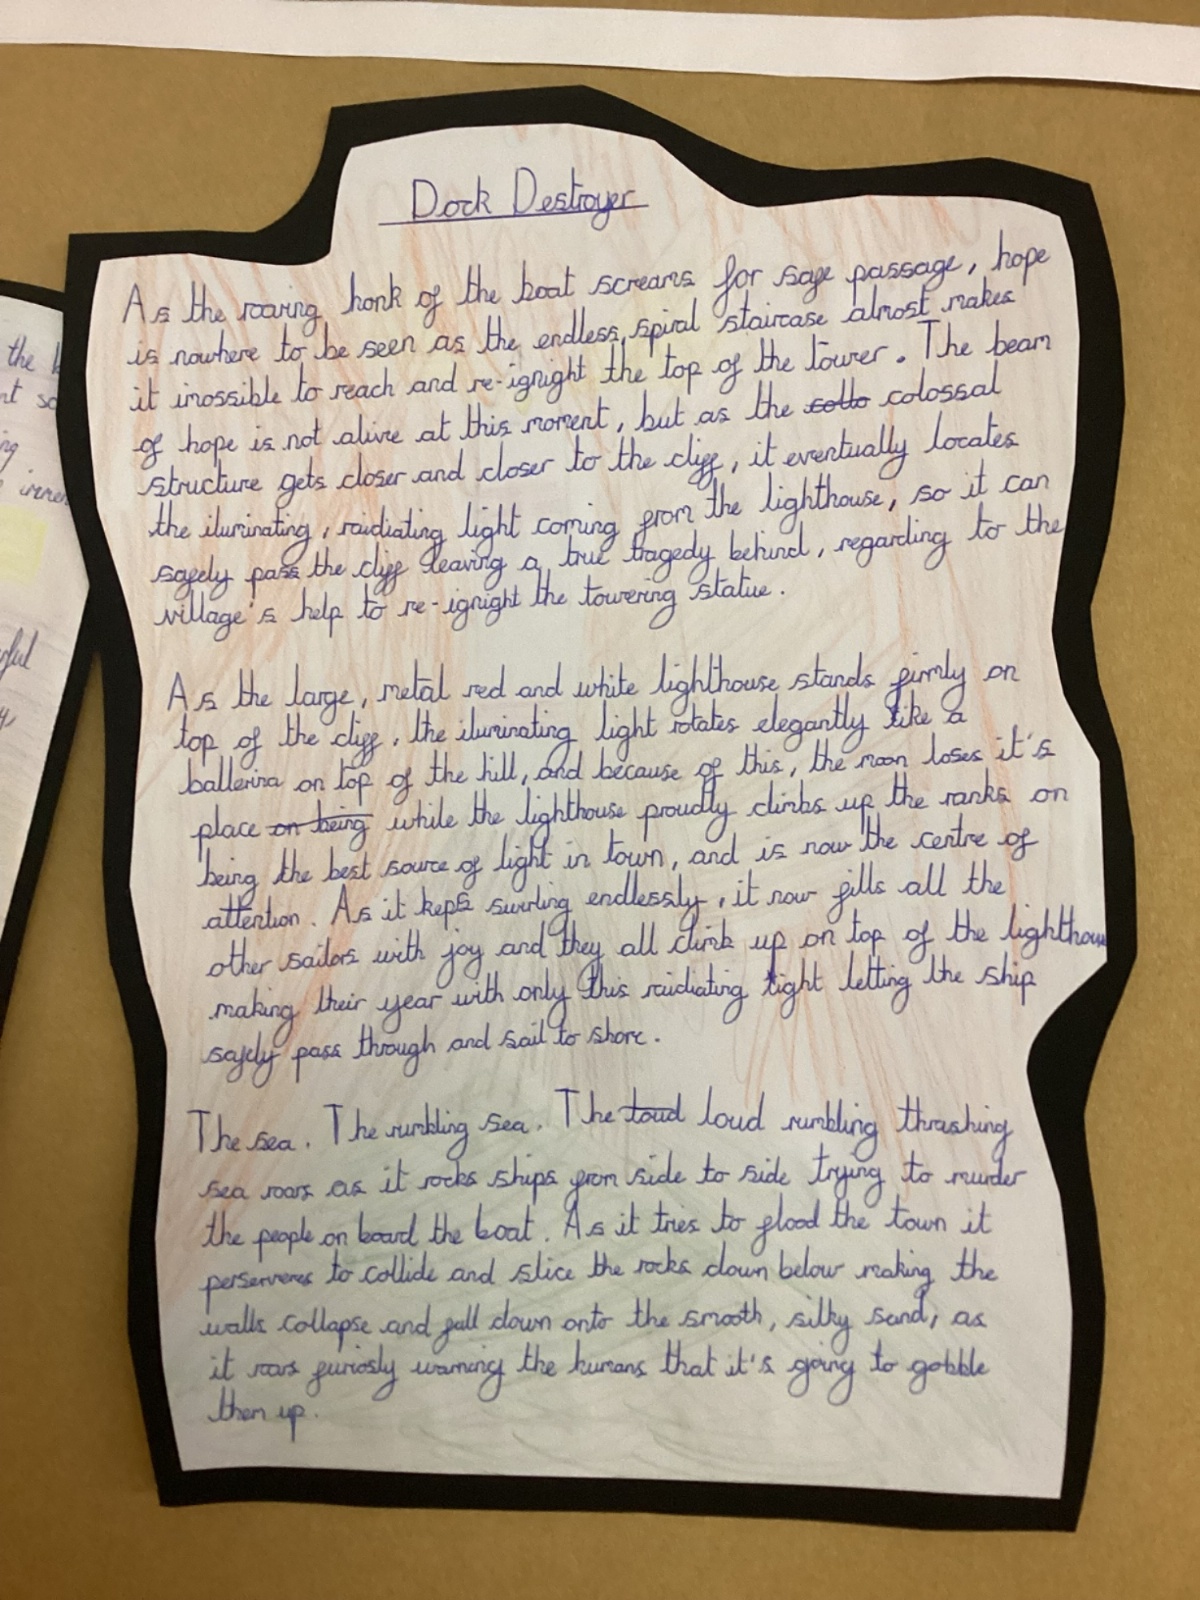 the
nt so
ng
immen
ful
Dock Destroyer
As the roaring honk of the boat screams for safe passage, hope
is nowhere to be seen as the endless, spiral staircase almost makes
it imossible to reach and re-ignight the top of the tower. The beam
of hope is not alive at this moment, but as the collo colossal
structure gets closer and closer to the cliff, it eventually locates
the iluminating, raidiating light coming from the lighthouse, so it can
safely pass the cliff leaving a true tragedy behind, regarding to the
village's help to re-ignight the towering statue.
As the large, metal red and white lighthouse stands firmly on
top of the cliff, the iluminating light rotates elegantly like a
ballerina on top of the hill, and because of this, the moon loses it's
place on being while the lighthouse proudly climbs up the ranks on
being the best source of light in town, and is now the centre of
attention. As it keeps swirling endlessly, it now fills all the
other sailors with joy and they all climb up on top of the lighthouse
making their year with only this raidiating light letting the ship
safely pass through and sail to shore.
The sea. The rumbling sea. The loud loud rumbling thrashing
sea roars as it rocks ships from side to side trying to murder
the people on board the boat. As it tries to flood the town it
perserveres to collide and slice the rocks down below making the
walls collapse and fall down onto the smooth, silky sand, as
it roars furiosly warning the humans that it's going to gobble
them up.